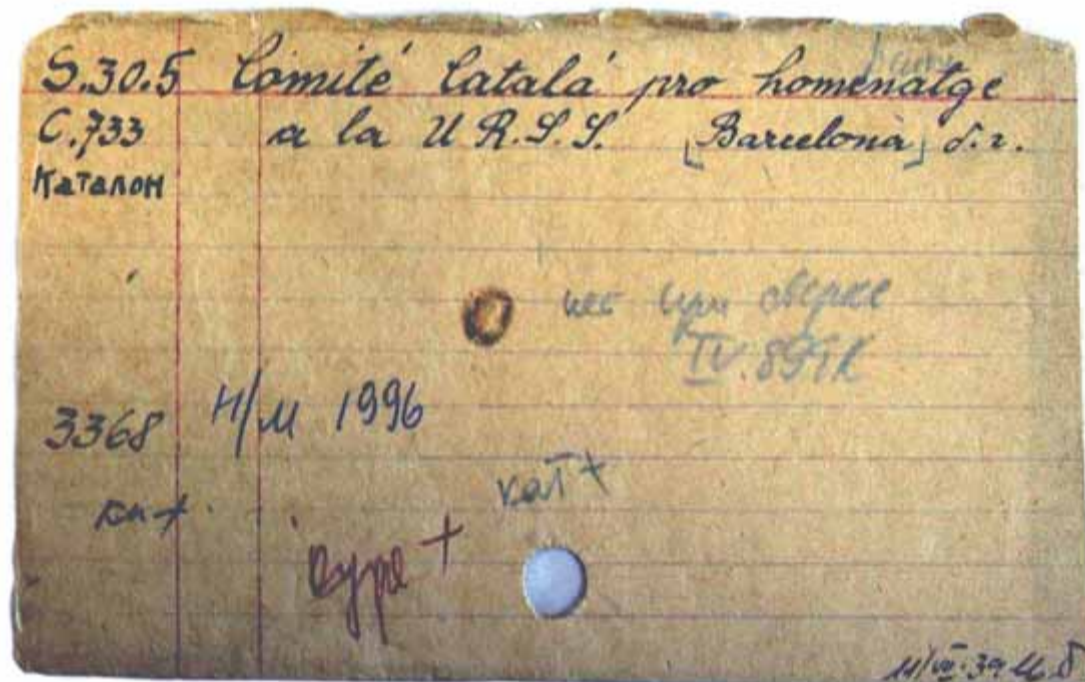 S.30.5 Comité Catalá pro homenatge
C.733 a la U.R.S.S. [Barcelona] б.г.
Каталон
нет при сверке
IV.89г
3368 Н/М 1996
кат+
кн +
+